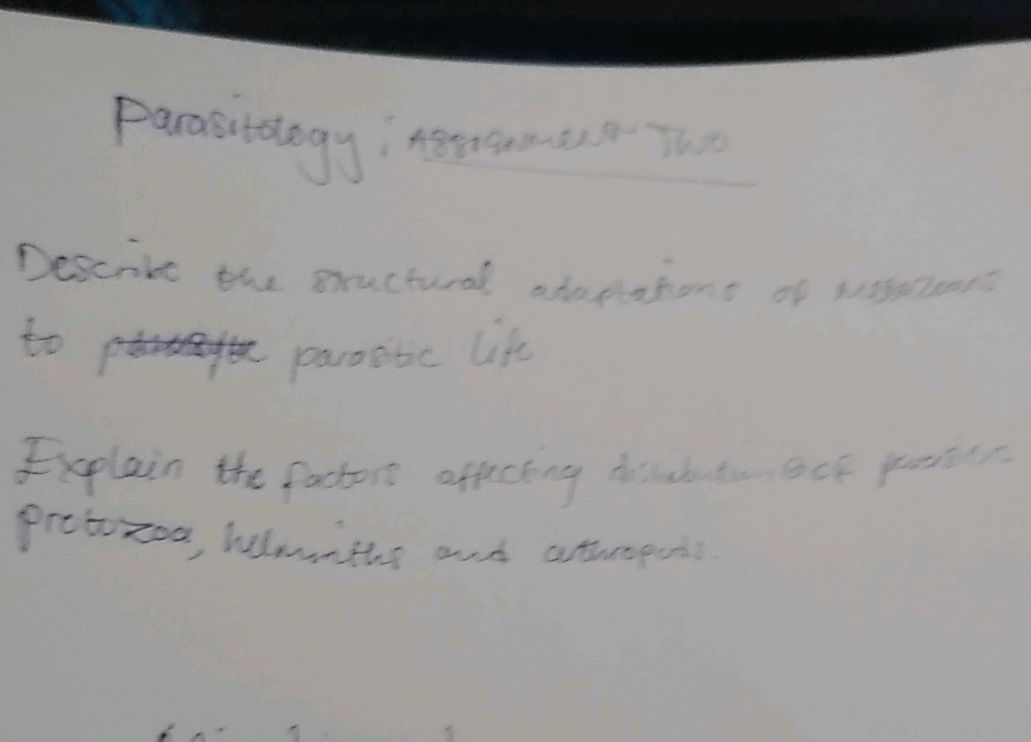 Parasitology; Assignment Two
Describe the structural adaptations of
to parasitic life
Explain the factors affecting distribution of parasitic
protozoa, helminths and arthropods.